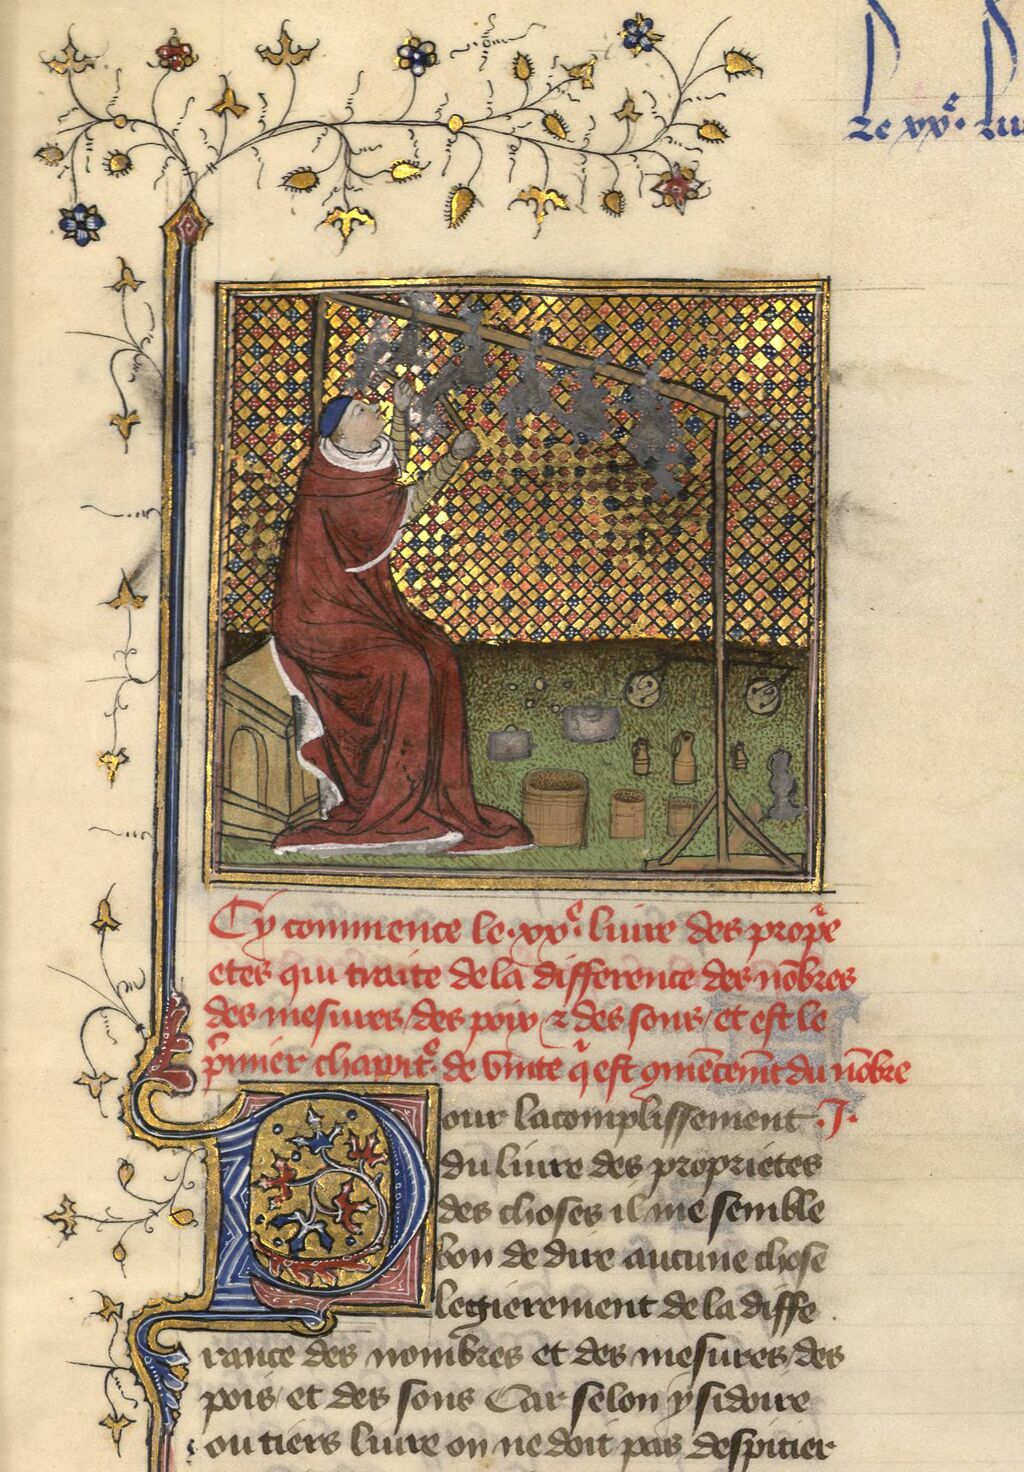 Le xxe. liu
Cy commence le .xxe. liure des propͥe
etes qui traite de la difference des nōbres
des mesures / des poix ⁊ des sons / et est le
p̍mier chapitͤ. de vnite q̄ est ꝯmēcemt̄ du nōbre
Pour lacomplissement .I.
du liure des proprietes
des choses il me semble
bon de dire aucune chose
legierement de la diffe
rance des nombres et des mesures / des
pois / et des sons Car selon ysidoire
ou tiers liure on ne doit pas despitier